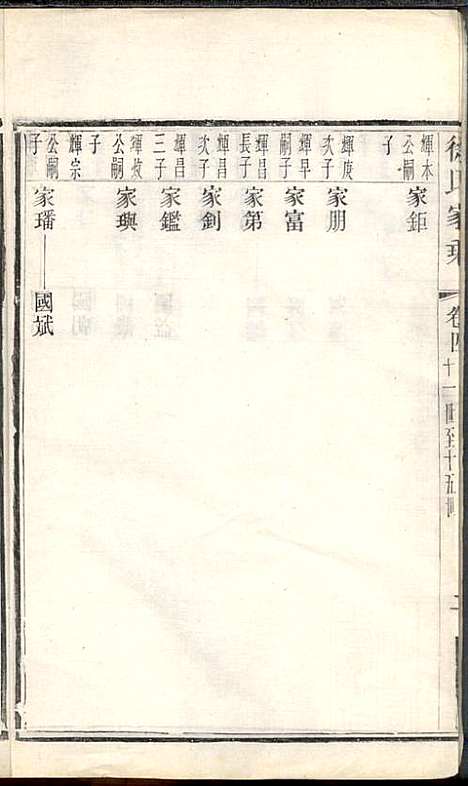 徐氏家乘
卷四 十一圖至十五圖
輝本公嗣子
家鉅
輝度次子
家朋
輝早嗣子
家富
輝昌長子
家第
輝昌次子
家釗
輝昌三子
家鑑
輝放公嗣子
家璵
輝宗公嗣子
家璠——國斌